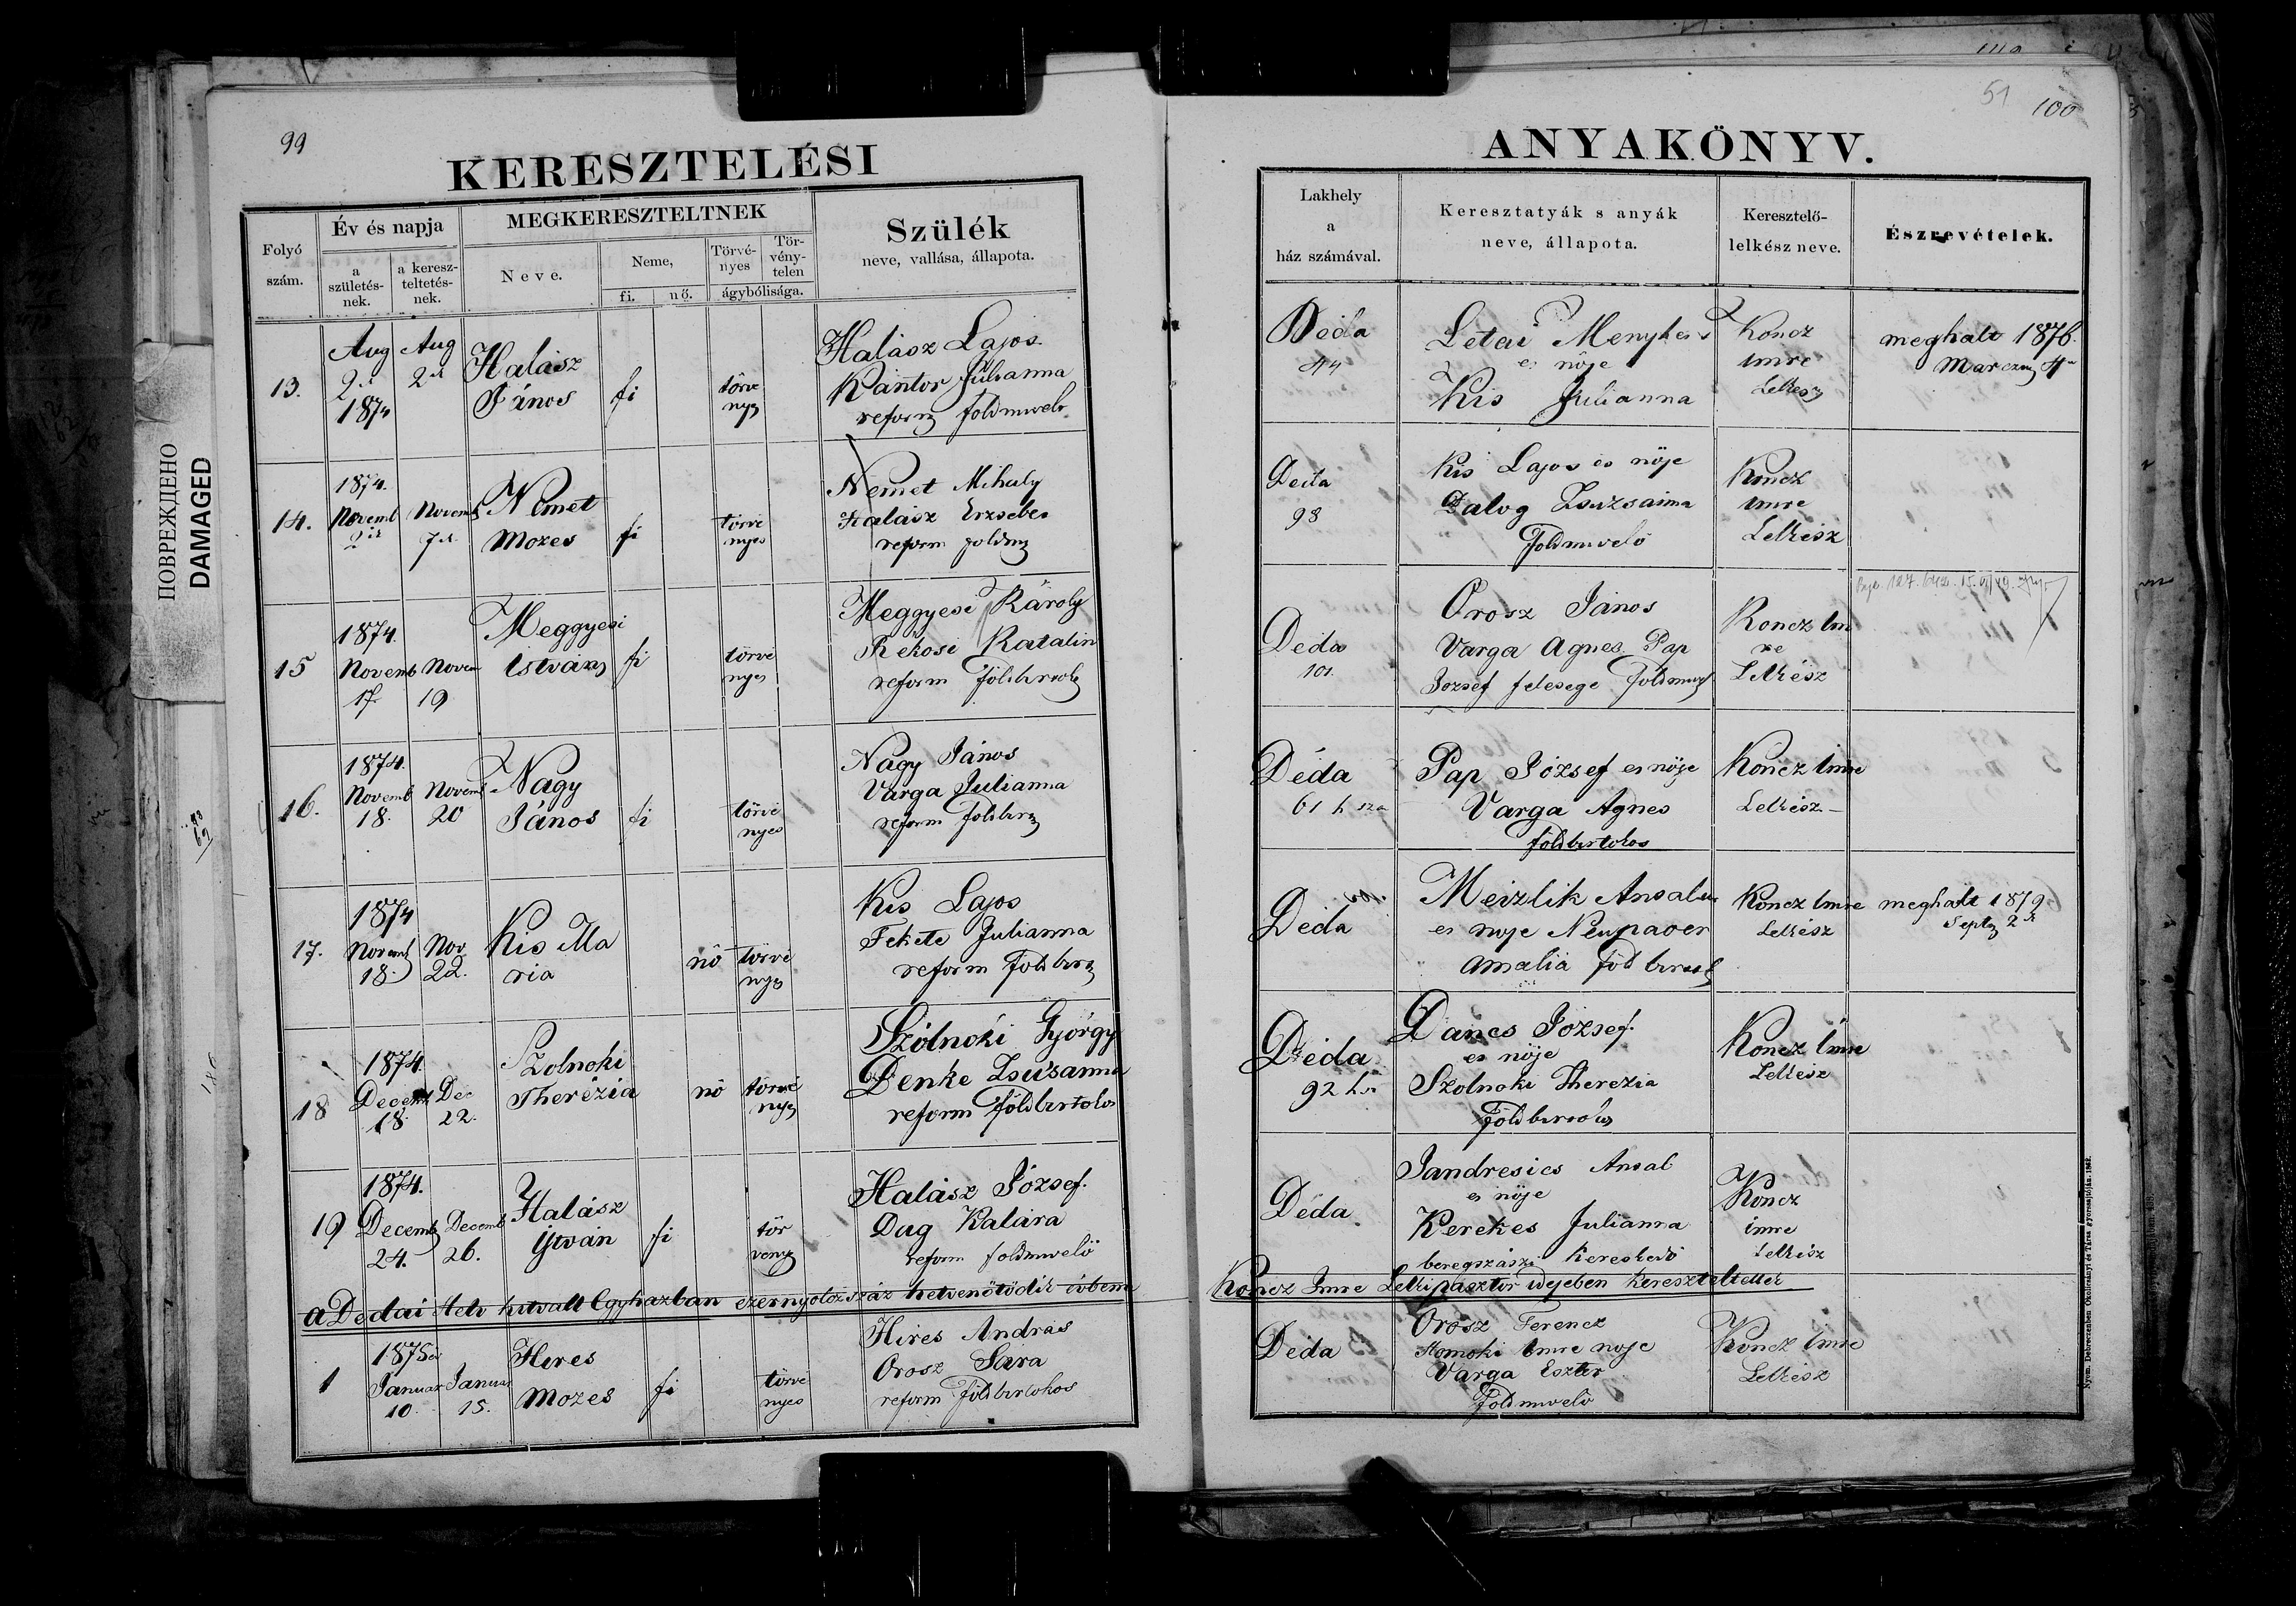 99
KERESZTELÉSI
Folyó szám.
Év és napja
a születés-nek.
a keresz-teltetés-nek.
MEGKERESZTELTNEK
Neve.
Neme,
fi. nő.
Törvé-nyes
Tör-vény-telen
ágybólisága.
Szülék
neve, vallása, állapota.
13.
Aug 2ik 1874
Aug 2ik
Halász
János
fi
törvé
nyes
Halász Lajos
Kántor Julianna
reform földmivelő
14.
1874.
Novemb 2ik
Novemb 7ik
Nemet
Mozes
fi
törvé
nyes
Nemet Mihaly
Halász Erzsebet
reform
15
1874.
Novemb 17
Novem 19
Meggyesi
István
fi
törvé
nyes
Meggyesi Károly
Rékosi Katalin
reform
16.
1874.
Novemb 18.
Novemb 20
Nagy
János
fi
törvé
nyes
Nagy János
Varga Julianna
reform
17.
1874
Novemb 18.
Nov 22.
Kis Ma
ria
nö
törvé
nyes
Kis Lajos
Fekete Julianna
reform
18
1874.
Decemb 18
Dec 22.
Szolnoki
Therézia
nö
törvé
nyes
Szólnoki György
Denke Zsuzsanna
reform Földbirtokos
19
1874.
Decemb 24.
Decemb 26.
Halász
István
fi
tör
venyes
Halász József.
Dug Kalára
reform földmivelö
a Dedai Helv hitvalt Egyhazban ezernyolczszáz hetvenötödik évben
1
1875
Januar 10.
Januar 15.
Hires
Mozes
fi
törvé
nyes
Hires András
Orosz Sára
reform Földbirtokos
ПОВРЕЖДЕНО
DAMAGED
51
100
ANYAKÖNYV.
Lakhely
a
ház számával.
Keresztatyák s anyák
neve, állapota.
Keresztelő-
lelkész neve.
Észrevételek.
Déda
44
Letai Menyhert
es nöje
Kis Julianna
Koncz
Imre
Lelkesz
meghalt 1876.
Marczius 4
Deda
98
Kis Lajos és nöje
Balog Zsuzsanna
Földmivelö
Koncz
Imre
Lelkész
Deda
101.
Orosz János
Varga Agnes Pap
Jozsef felesege
Koncz Im
re
Lelkész
Déda
61 h sza
Pap József es nöje
Varga Agnes
földbirtokos
Koncz Imre
Lelkész
Déda
Meizlik Ansalm
es noje Neupaver
Amalia
Koncz Imre
Lelkész
meghalt 1879
Sept 2ik
Déda
92 h
Dancs József.
es nöje
Szolnoki Therezia
Koncz Imre
Lelkész
Déda
Jandresics Ansal
es nöje
Kerekes Julianna
beregszászi kereskedö
Koncz
imre
Lelkész
Koncz Imre Lelkipásztor idejeben kereszteltettek
Déda
Orosz Ferencz
Homoki Imre noje
Varga Eszter
Földmivelö
Koncz Imre
Lelkész
Nyom. Debreczenben Okolicsányi és Társa gyorssajtóján. 1862.